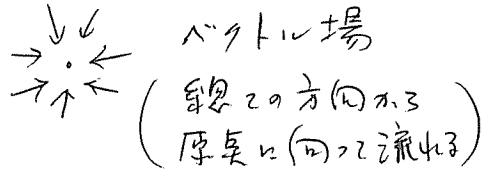 ベクトル場
(総ての方向から
原点に向って流れる)